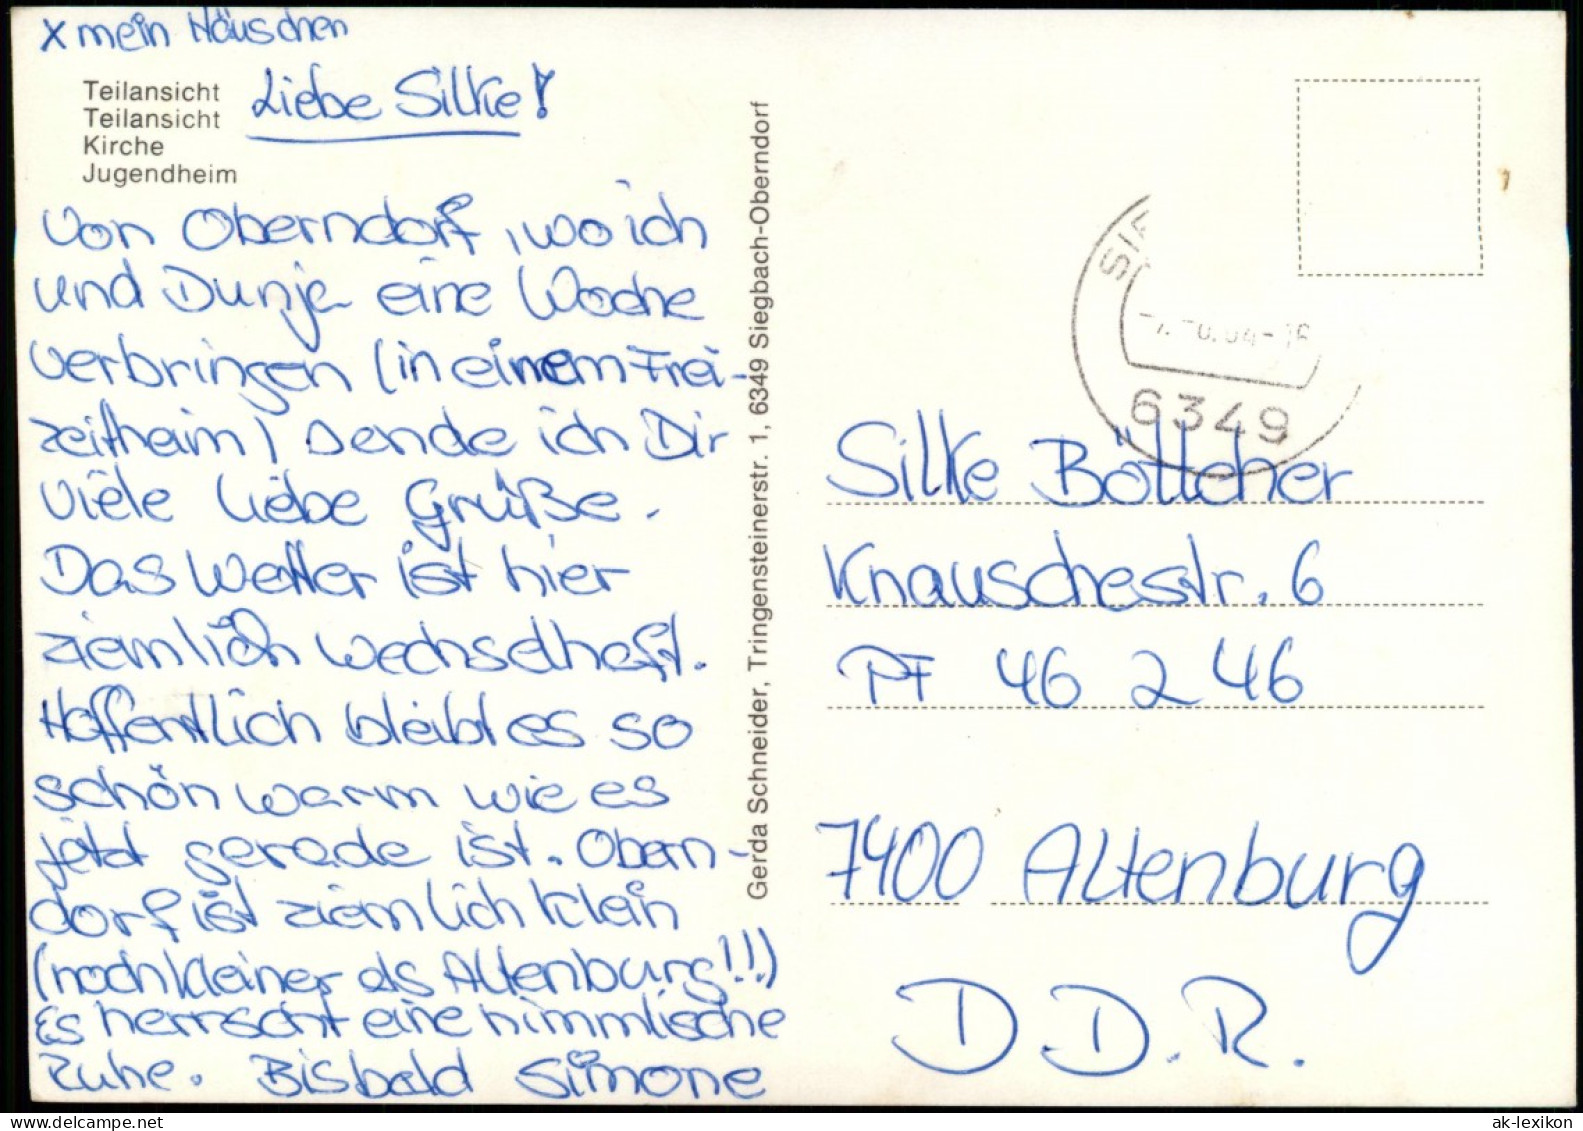 x mein Häuschen
Teilansicht
Teilansicht
Kirche
Jugendheim
Liebe Silke!
Von Oberndorf, wo ich
und Dunja eine Woche
verbringen (in einem Frei-
zeitheim) sende ich Dir
viele liebe Grüße.
Das Wetter ist hier
ziemlich wechselhaft.
Hoffentlich bleibt es so
schön warm wie es
jetzt gerade ist. Obern-
dorf ist ziemlich klein
(noch kleiner als Altenburg!!!)
Es herrscht eine himmlische
Ruhe. Bis bald Simone
Gerda Schneider, Tringensteinerstr. 1, 6349 Siegbach-Oberndorf
6349
Silke Böttcher
Knauschestr. 6
PF 46 2 46
7400 Altenburg
D.D.R.
ak-lexikon